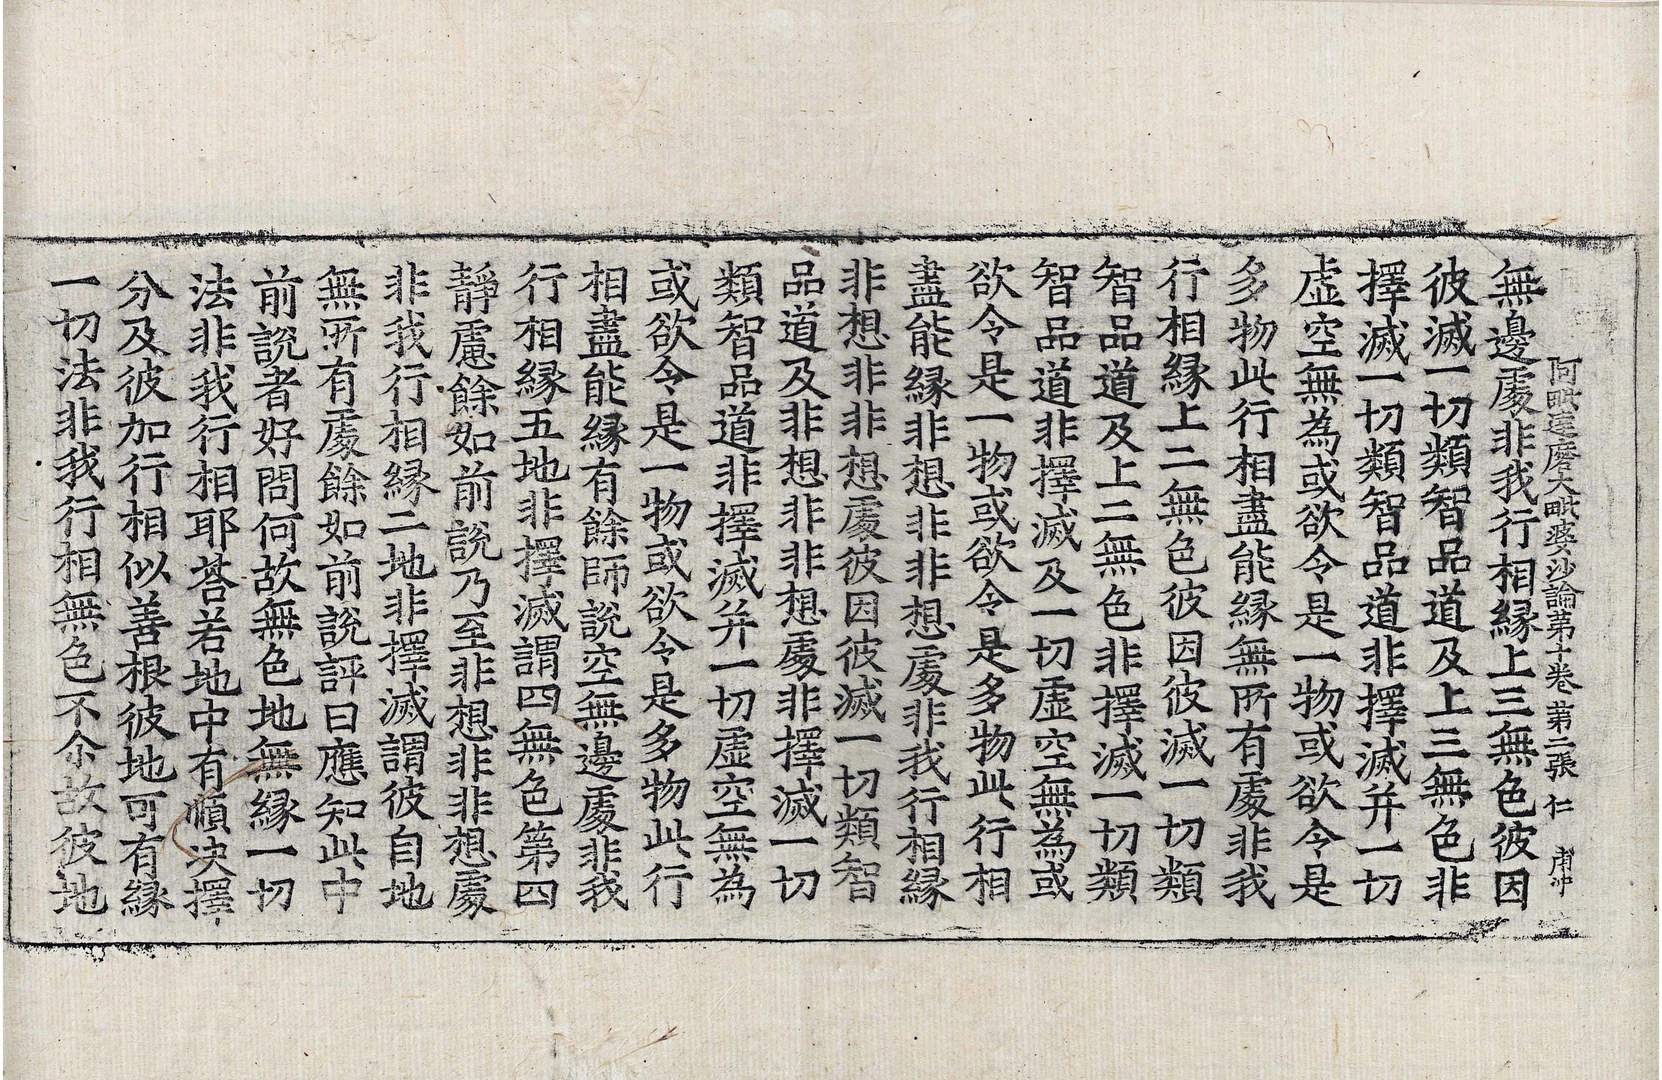 阿毗達磨大毗婆沙論第十卷 第二張 仁
無邊處非我行相緣上三無色彼因
彼滅一切類智品道及上三無色非
擇滅一切類智品道非擇滅并一切
虛空無為或欲令是一物或欲令是
多物此行相盡能緣無所有處非我
行相緣上二無色彼因彼滅一切類
智品道及上二無色非擇滅一切類
智品道非擇滅及一切虛空無為或
欲令是一物或欲令是多物此行相
盡能緣非想非非想處非我行相緣
非想非非想處彼因彼滅一切類智
品道及非想非非想處非擇滅一切
類智品道非擇滅并一切虛空無為
或欲令是一物或欲令是多物此行
相盡能緣有餘師說空無邊處非我
行相緣五地非擇滅謂四無色第四
靜慮餘如前說乃至非想非非想處
非我行相緣二地非擇滅謂彼自地
無所有處餘如前說評曰應知此中
前說者好問何故無色地無緣一切
法非我行相耶荅若地中有順決擇
分及彼加行相似善根彼地可有緣
一切法非我行相無色不尒故彼地